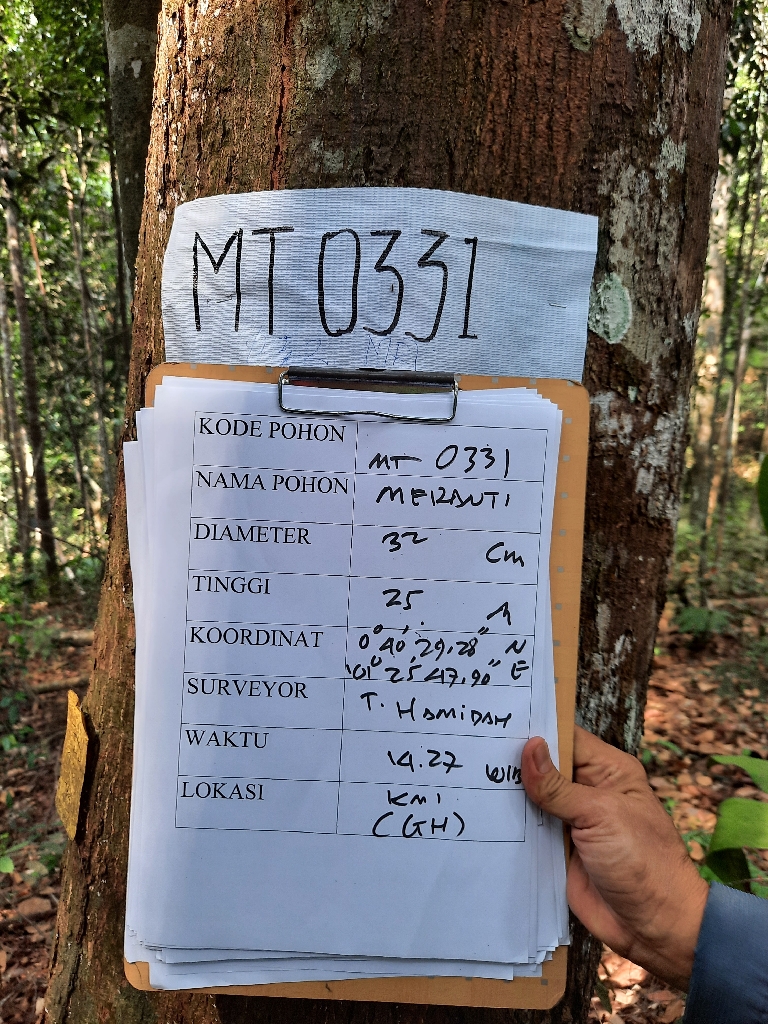 MT 0331
KODE POHON MT 0331
NAMA POHON MERANTI
DIAMETER 32 Cm
TINGGI 25 M
KOORDINAT 0° 40' 29,28" N
101° 25' 47,90" E
SURVEYOR T. HAMIDAH
WAKTU 14.27 WIB
LOKASI KM1
(GH)